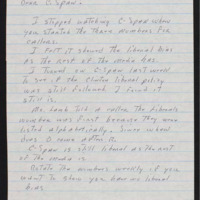 Dear C-Span,
I stopped watching C-Span when
you started the three numbers for
callers.
I felt it showed the liberal bias
as the rest of the media has.
I tuned on C-Span last week
to see if the Clinton liberal policy
was still followed. I found it
still is.
Mr. Lamb told a caller the liberals
number was first because they were
listed alphabetically. Since when
does D come after R
C-Span is still liberal as the rest
of the media is
Rotate the numbers weekly if you
want to show you have no liberal
bias